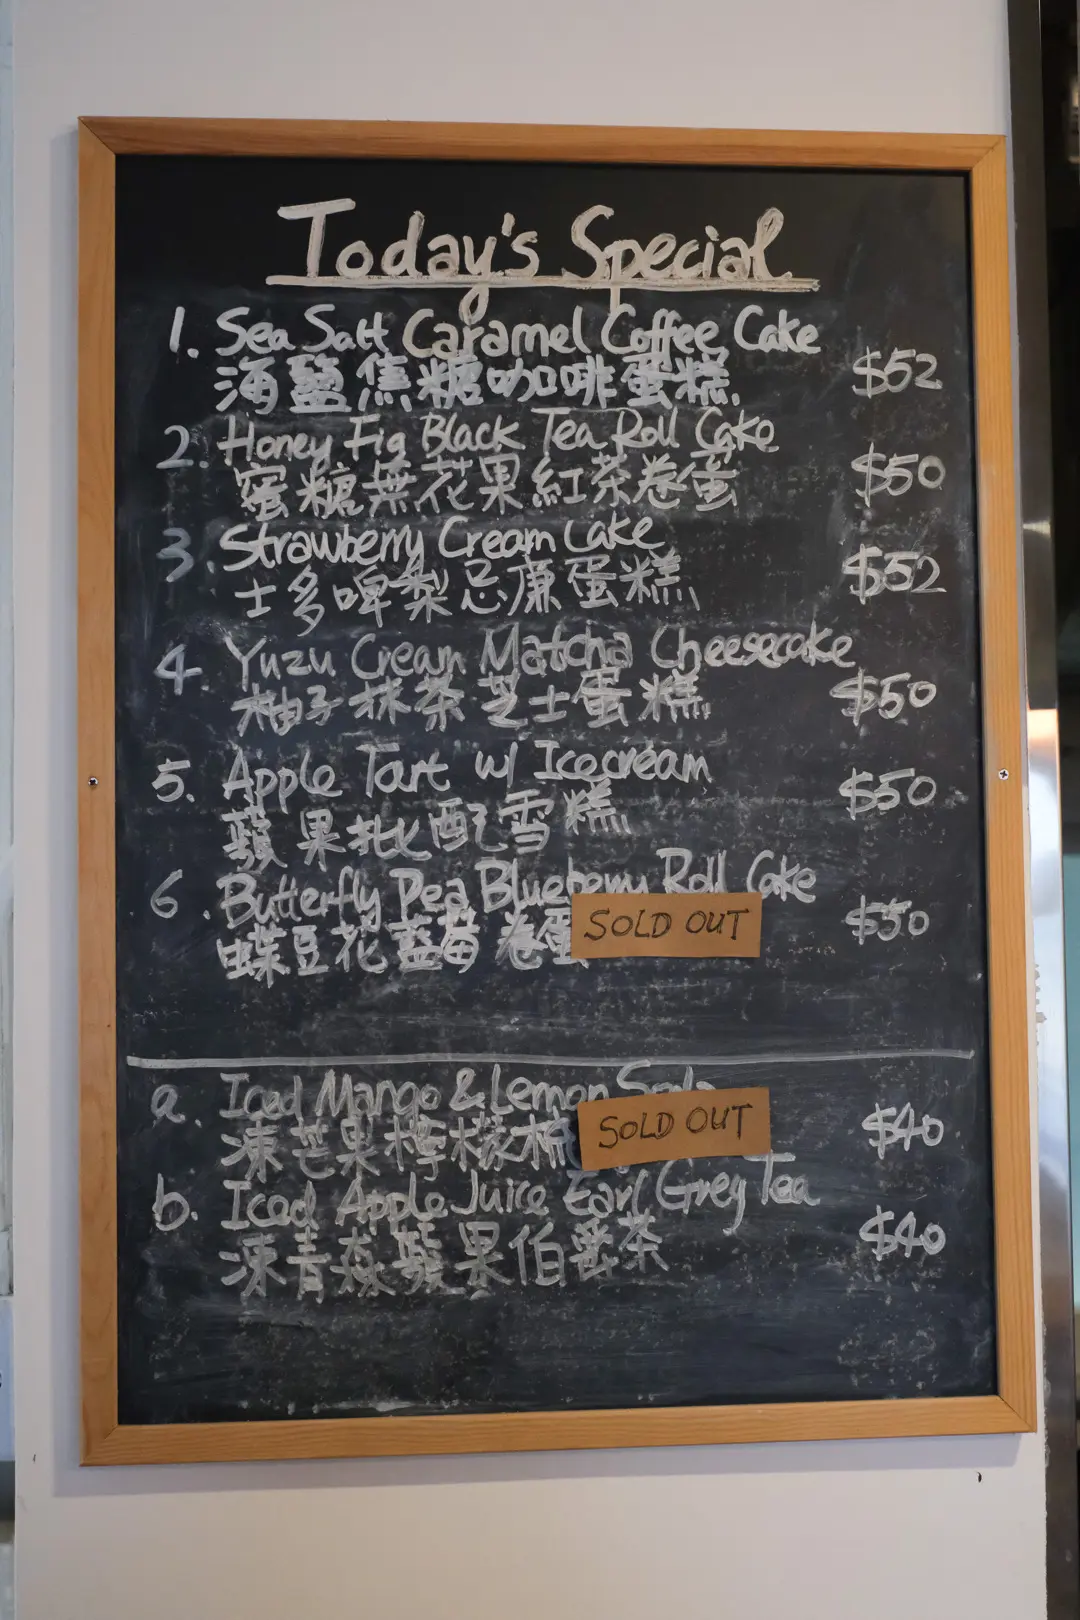 Today's Special
1. Sea Salt Caramel Coffee Cake
海鹽焦糖咖啡蛋糕 $52
2. Honey Fig Black Tea Roll Cake
蜜糖無花果紅茶卷蛋 $50
3. Strawberry Cream Cake
士多啤梨忌廉蛋糕 $52
4. Yuzu Cream Matcha Cheesecake
柚子抹茶芝士蛋糕 $50
5. Apple Tart w/ Icecream
蘋果批配雪糕 $50
6. Butterfly Pea Blueberry Roll Cake
蝶豆花藍莓卷蛋 SOLD OUT $50
a. Iced Mango & Lemon Soda
凍芒果檸檬梳 SOLD OUT $40
b. Iced Apple Juice Earl Grey Tea
凍青森蘋果伯爵茶 $40